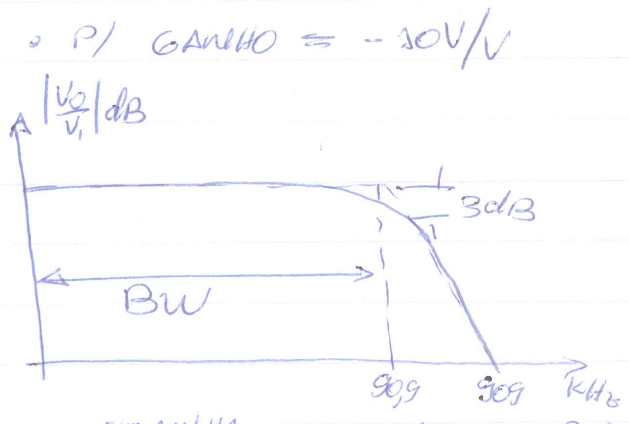 • P/ GANHO = - 10V/V
|Vo/V1| dB
3dB
BW
90,9 909 KHz